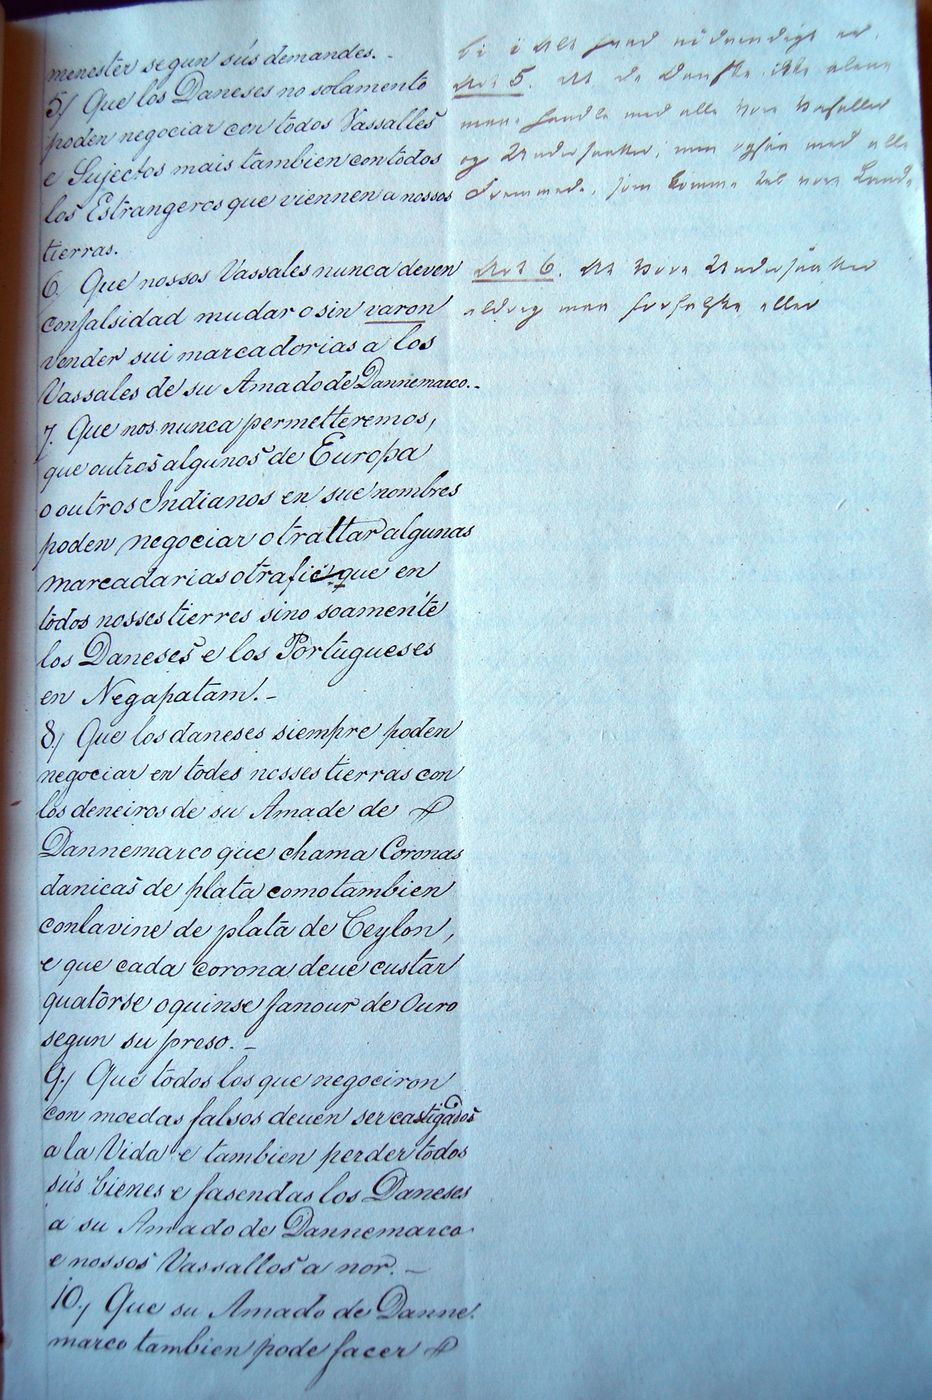 menester segun sús demandes. -
5) Que los Daneses no solamento
poden negociar con todos Vassalles
e Sujectos mais tambien con todos
los Estrangeros que viennen a nossos
tierras.
6. Que nossos Vassales nunca deven
con falsidad mudar o sin varon
vender sui marcadorias a los
Vassales de su Amado de Dannemarco. -
7. Que nos nunca permetteremos,
que outros algunos de Europa
o outros Indianos en sue nombres
poden negociar o trattar algunas
marcadarias o trafic que en
todos nosses tierres sino soamente
los Daneses e los Portugueses
en Negapatam. -
8) Que los daneses siempre poden
negociar en todes nosses tierras con
los deneiros de su Amade de
Dannemarco que chama Coronas
danicas de plata como tambien
con lavine de plata de Ceylon,
e que cada corona deue custar
quatorse o quinse fanour de Ouro
segun su preso. -
9) Que todos los que negociron
con moedas falsos deuen ser castigados
a la Vida e tambien perder todos
sus bienes e fasendas los Daneses
a su Amado de Dannemarco
e nossos Vassallos a nor. -
10) Que su Amado de Danne
marco tambien pode facer
nödvendigt
Art 5. At de Danske ikke alene
maae handle med alle vore Vasaller
og Undersaatter, men ogsaa med alle
Fremmede, som komme til vore Lande
Art 6. At vore Undersaatter
aldrig maa forfalske eller